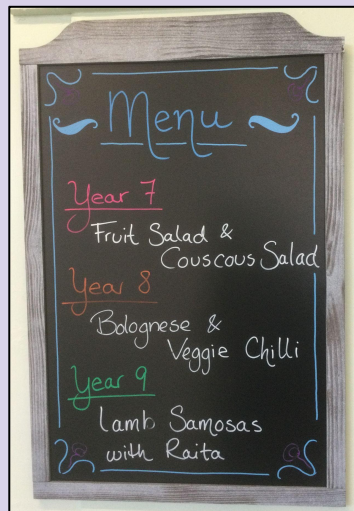 Menu
Year 7
Fruit Salad &
Couscous Salad
Year 8
Bolognese &
Veggie Chilli
Year 9
Lamb Samosas
with Raita